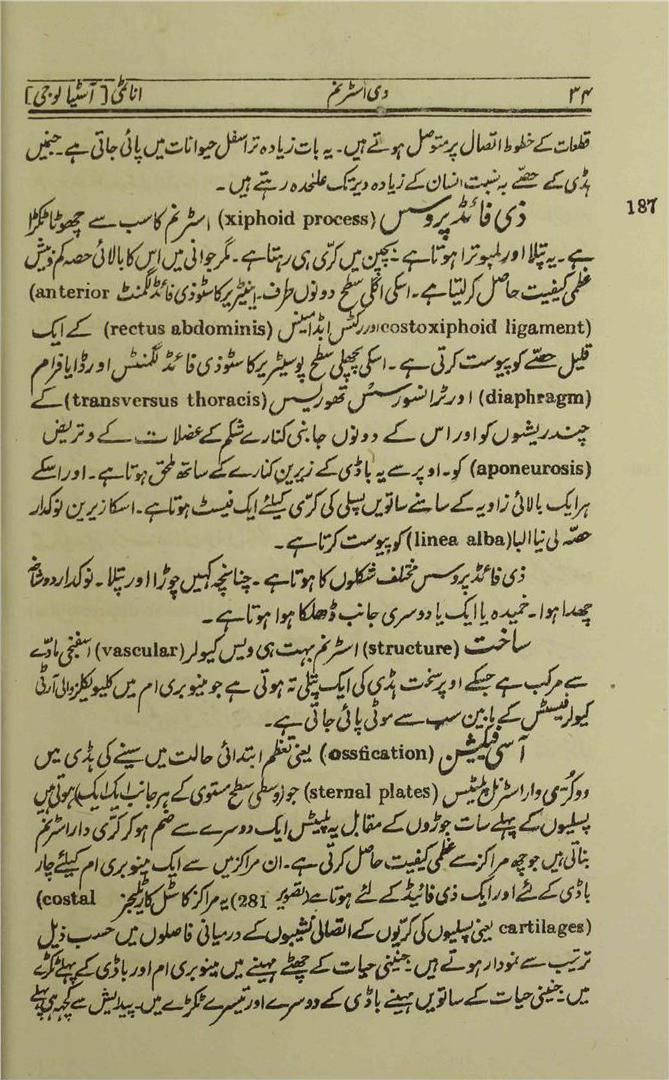 ۳۴ دی اسٹرنم اناٹمی [آسٹیالوجی]
قطعات کے خطوط اتصال پر متوصل ہوتے ہیں۔ یہ بات زیادہ تر اسفل حیوانات میں پائی جاتی ہے۔ جنمیں
ہڈی کے حصّے بہ نسبت انسان کے زیادہ دیر تک علیٰحدہ رہتے ہیں۔
187
ذی فائڈ پروسس (xiphoid process) اسٹرنم کا سب سے چھوٹا ٹکڑا
ہے۔ یہ پتلا اور لمبوترا ہوتا ہے۔ بچپن میں کرّی ہی رہتا ہے۔ مگر جوانی میں اس کا بالائی حصہ کم و بیش
عظمی کیفیت حاصل کر لیتا ہے۔ اسکی اگلی سطح دونوں طرف۔ اینٹیریر کاسٹو ذی فائڈ لگمنٹ (anterior
costoxiphoid ligament) اور رکٹس ابڈامینس (rectus abdominis) کے ایک
قلیل حصّے کو پیوست کرتی ہے۔ اسکی پچھلی سطح پوسٹیریر کاسٹو ذی فائڈ لگمنٹس اور ڈایافرام
(diaphragm) اور ٹرانسورسس تھوریسس (transversus thoracis) کے
چند ریشوں کو اور اس کے دونوں جانبی کنارے شکم کے عضلات کے وتر یض
(aponeurosis) کو۔ اوپر سے یہ باڈی کے زیرین کنارے کے ساتھ ملحق ہوتا ہے۔ اور اسکے
ہر ایک بالائی زاویہ کے سامنے ساتویں پسلی کی کرّی کیلئے ایک فیسٹ ہوتا ہے۔ اسکا زیرین نوکدار
حصّہ لی نیا البا (linea alba) کو پیوست کرتا ہے۔
ذی فائڈ پروسس مختلف شکلوں کا ہوتا ہے۔ چنانچہ کہیں چوڑا اور پتلا۔ نوکدار دوشاخہ
چھدا ہوا۔ خمیدہ یا ایک یا دوسری جانب ڈھلکا ہوا ہوتا ہے۔
ساخت (structure) اسٹرنم بہت ہی ویس کیولر (vascular) اسفنجی مادّے
سے مرکب ہے جسکے اوپر سخت ہڈی کی ایک پتلی تہ ہوتی ہے جو مینوبری ام میں کلیویکلز والی آرٹی
کیولر فیسٹس کے مابین سب سے موٹی پائی جاتی ہے۔
آسی فیکیشن (ossfication) یعنی تعظم ابتدائی حالت میں سینے کی ہڈی میں
دو کرّی دار اسٹرنل پلیٹس (sternal plates) جو (وسطی سطح مستوی کے ہر جانب ایک ایک) ہوتی ہیں
پسلیوں کے پہلے سات جوڑوں کے مقابل یہ پلیٹس ایک دوسرے سے ضم ہو کر کرّی دار اسٹرنم
بناتی ہیں جو چھ مراکز سے عظمی کیفیت حاصل کرتی ہے۔ ان مراکز میں سے ایک مینوبری ام کیلئے چار
باڈی کے لئے اور ایک ذی فائیڈ کے لئے ہوتا ہے (تصویر 281) یہ مراکز کاسٹل کارٹیلیجز (costal
cartilages) یعنی پسلیوں کی کرّیوں کے اتصالی نشیبوں کے درمیانی فاصلوں میں حسب ذیل
ترتیب سے نمودار ہوتے ہیں: جنینی حیات کے چھٹے مہینے میں مینوبری ام اور باڈی کے پہلے ٹکڑے
میں۔ جنینی حیات کے ساتویں مہینے باڈی کے دوسرے اور تیسرے ٹکڑے میں۔ پیدائش سے کچھ ہی پہلے